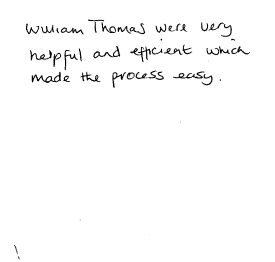 William Thomas were very
helpful and efficient which
made the process easy.